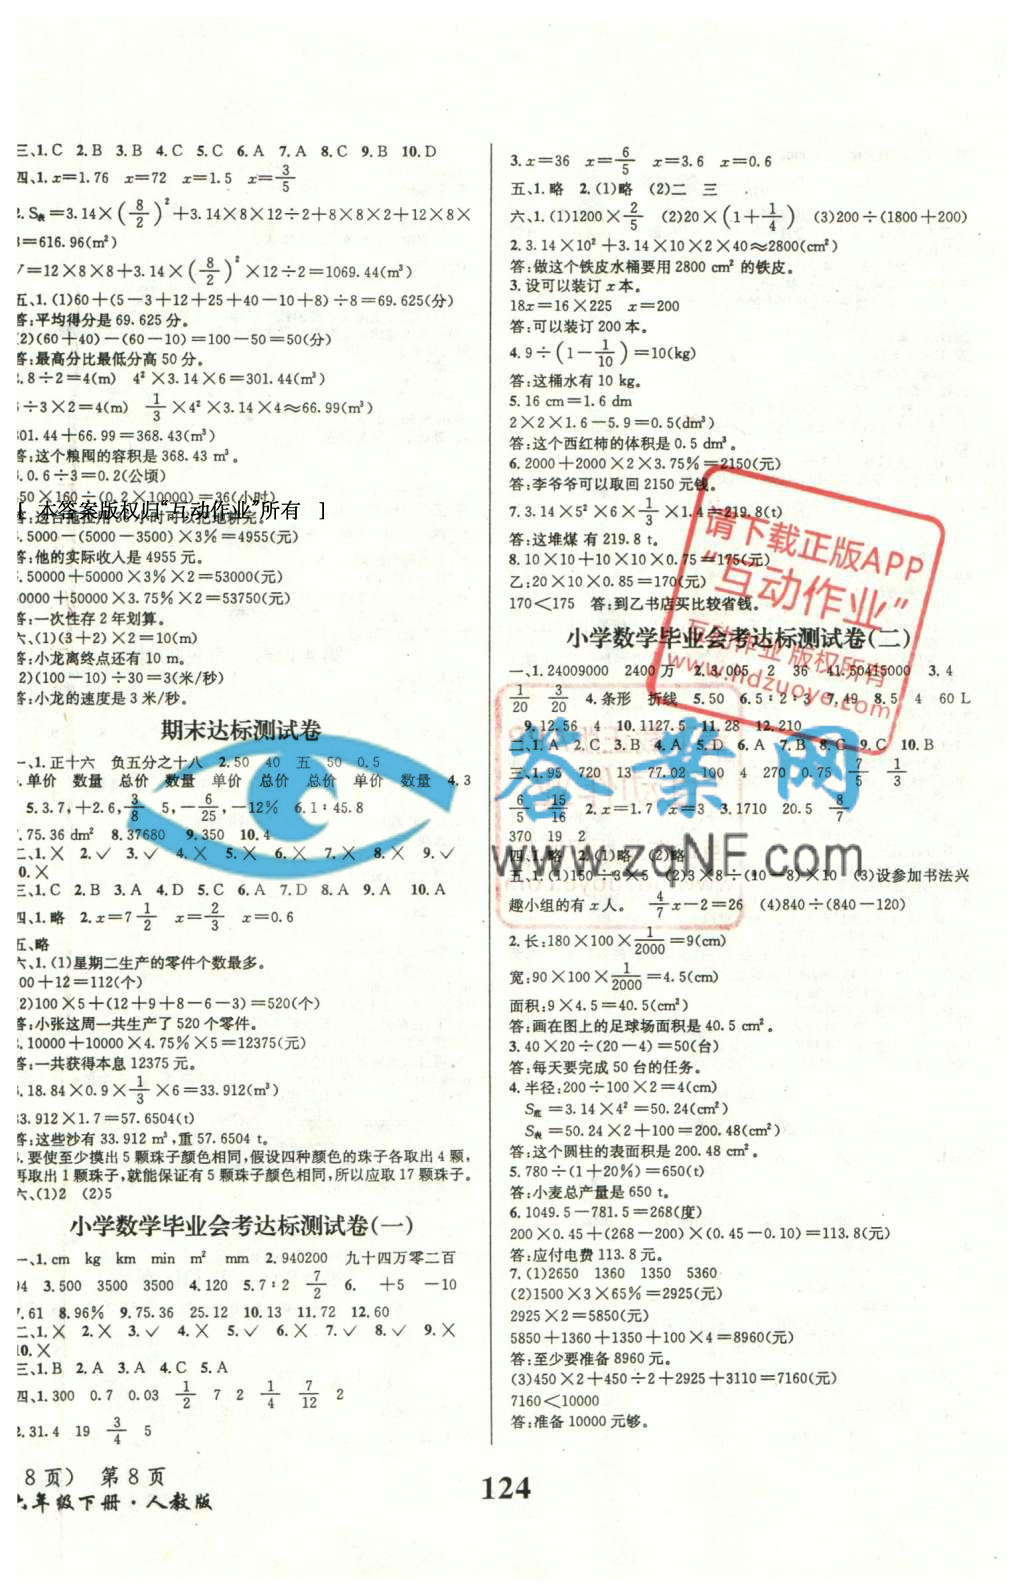 三、1.C 2.B 3.B 4.C 5.C 6.A 7.A 8.C 9.B 10.D
四、1.x=1.76 x=72 x=1.5 x=3/5
2.S表=3.14×(8/2)²+3.14×8×12÷2+8×8×5+12×8×
8=616.96(m²)
V=12×8×8+3.14×(8/2)²×12÷2=1069.44(m³)
五、1.(1)60+(5-3+12+25+40-10+8)÷8=69.625(分)
答:平均得分是69.625分。
(2)(60+40)-(60-10)=100-50=50(分)
答:最高分比最低分高50分。
2.8÷2=4(m) 4²×3.14×6=301.44(m³)
6÷3×2=4(m) 1/3×4²×3.14×4≈66.99(m³)
301.44+66.99=368.43(m³)
答:这个粮囤的容积是368.43 m³。
3.0.6÷3=0.2(公顷)
[ 本答案版权归“互动作业”所有 ]
4.5000-(5000-3500)×3%=4955(元)
答:他的实际收入是4955元。
5.50000+50000×3%×2=53000(元)
50000+50000×3.75%×2=53750(元)
答:一次性存2年划算。
六、(1)(3+2)×2=10(m)
答:小龙离终点还有10 m。
(2)(100-10)÷30=3(米/秒)
答:小龙的速度是3米/秒。
期末达标测试卷
一、1.正十六 负五分之十八 2.50 40 五 50 0.5
3.单价 数量 总价 数量 单价 总价 总价 单价 数量 4.3
5.3.7,+2.6,3/8 5,-6/25,-12% 6.1∶45.8
7.75.36 dm² 8.37680 9.350 10.4
二、1.× 2.✓ 3.✓ 4.× 5.× 6.× 7.× 8.× 9.✓
10.×
三、1.C 2.B 3.A 4.D 5.C 6.C 7.D 8.A 9.A 10.A
四、1.略 2.x=7 1/2 x=2/3 x=0.6
五、略
六、1.(1)星期二生产的零件个数最多。
100+12=112(个)
(2)100×5+(12+9+8-6-3)=520(个)
答:小张这周一共生产了520个零件。
2.10000+10000×4.75%×5=12375(元)
答:一共获得本息12375元。
3.18.84×0.9×1/3×6=33.912(m³)
33.912×1.7=57.6504(t)
答:这些沙有33.912 m³,重57.6504 t。
4.要使至少摸出5颗珠子颜色相同,假设四种颜色的珠子各取出4颗,
再取出1颗珠子,就能保证有5颗珠子颜色相同,所以应取17颗珠子。
六、(1)2 (2)5
小学数学毕业会考达标测试卷(一)
一、1.cm kg km min m² mm 2.940200 九十四万零二百
94 3.500 3500 3500 4.120 5.7∶2 7/2 6. +5 -10
7.61 8.96% 9.75.36 25.12 10.13 11.72 12.60
二、1.× 2.× 3.✓ 4.× 5.✓ 6.× 7.✓ 8.✓ 9.×
10.×
三、1.B 2.A 3.A 4.C 5.A
四、1.300 0.7 0.03 1/2 7 2 1/4 7/12 2
2.31.4 19 3/4 5
8页) 第8页
六年级下册·人教版
3.x=36 x=6/5 x=3.6 x=0.6
五、1.略 2.(1)略 (2)二 三
六、1.(1)1200×2/5 (2)20×(1+1/4) (3)200÷(1800+200)
2.3.14×10²+3.14×10×2×40≈2800(cm²)
答:做这个铁皮水桶要用2800 cm²的铁皮。
3.设可以装订x本。
18x=16×225 x=200
答:可以装订200本。
4.9÷(1-1/10)=10(kg)
答:这桶水有10 kg。
5.16 cm=1.6 dm
2×2×1.6-5.9=0.5(dm³)
答:这个西红柿的体积是0.5 dm³。
6.2000+2000×2×3.75%=2150(元)
答:李爷爷可以取回2150元钱。
7.3.14×5²×6×1/3×1.4=219.8(t)
答:这堆煤有219.8 t。
8.10×10+10×10×0.75=175(元)
乙:20×10×0.85=170(元)
170<175 答:到乙书店买比较省钱。
请下载正版APP
“互动作业”
互动作业 版权所有
www.hdzuoye.com
小学数学毕业会考达标测试卷(二)
一、1.24009000 2400万 2.3.005 2 36 41.50415000 3.4
1/20 3/20 4.条形 折线 5.50 6.5∶2∶3 7.49 8.5 4 60 L
9.12.56 4 10.1127.5 11.28 12.210
二、1.A 2.C 3.B 4.A 5.D 6.A 7.B 8.C 9.C 10.B
三、1.95 720 13 77.02 100 4 270 0.75 7/5 1/3
6/5 15/16 2.x=1.7 x=3 3.1710 20.5 8/7
370 19 2
答案网
www.zqNF.com
四、1.略 2.(1)略 (2)略
五、1.(1)150÷3×5 (2)3×8÷(10-8)×10 (3)设参加书法兴
趣小组的有x人。 4/7x-2=26 (4)840÷(840-120)
2.长:180×100×1/2000=9(cm)
宽:90×100×1/2000=4.5(cm)
面积:9×4.5=40.5(cm²)
答:画在图上的足球场面积是40.5 cm²。
3.40×20÷(20-4)=50(台)
答:每天要完成50台的任务。
4.半径:200÷100×2=4(cm)
S底=3.14×4²=50.24(cm²)
S表=50.24×2+100=200.48(cm²)
答:这个圆柱的表面积是200.48 cm²。
5.780÷(1+20%)=650(t)
答:小麦总产量是650 t。
6.1049.5-781.5=268(度)
200×0.45+(268-200)×(0.45-0.10)=113.8(元)
答:应付电费113.8元。
7.(1)2650 1360 1350 5360
(2)1500×3×65%=2925(元)
2925×2=5850(元)
5850+1360+1350+100×4=8960(元)
答:至少要准备8960元。
(3)450×2+450÷2+2925+3110=7160(元)
7160<10000
答:准备10000元够。
124